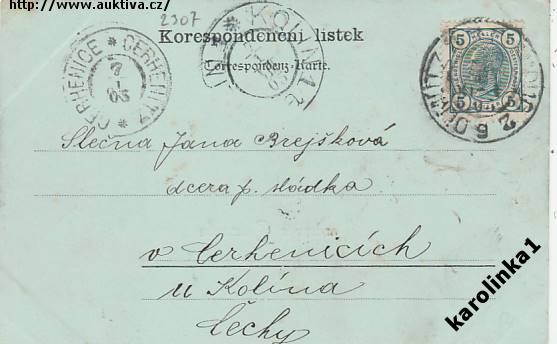 http://www.auktiva.cz
2307
Korespondenční lístek
Correspondenz-Karte.
CERHENICE * CERHENITZ *
KOLÍN
5 5
5 5
Slečna Jana Brejšková
dcera p. sládka
v Cerhenicích
u Kolína
Čechy
karolinka1